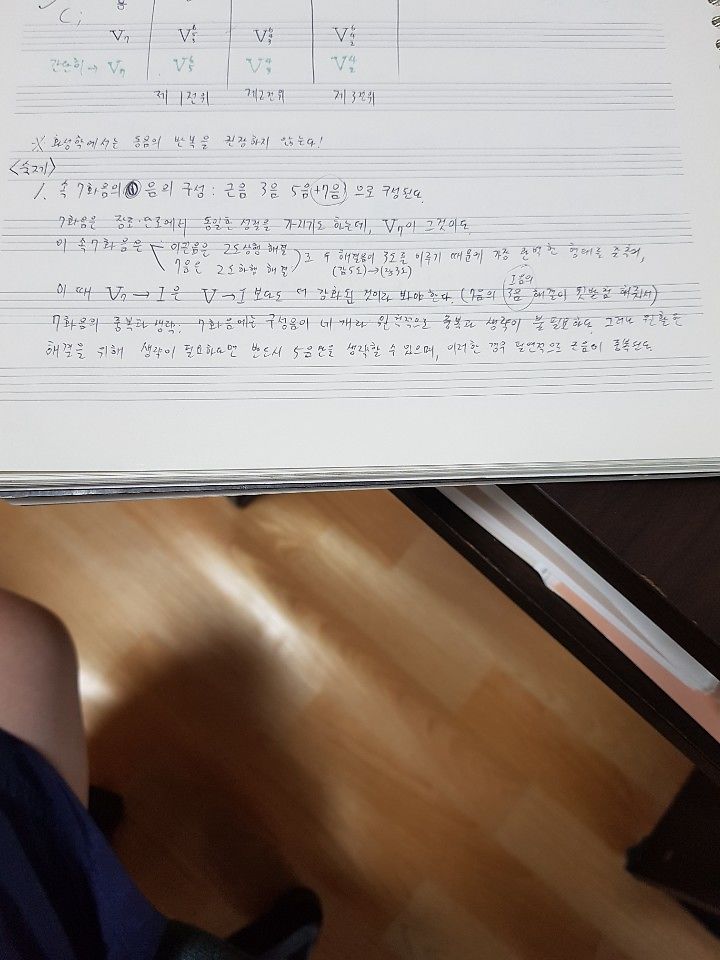 C;
V7 V6/5/3 V6/4/3 V6/4/2
간단히→ V7 V6/5 V4/3 V4/2
제 1전위 제2전위 제 3전위
※ 화성학에서는 동음의 반복을 권장하지 않는다!
<숙제>
1. 속 7화음의 음의 구성: 근음 3음 5음(+7음) 으로 구성된다.
7화음은 장조·단조에서 동일한 성질을 가지기도 하는데, V7이 그것이다
이 속7화음은 이끈음은 2도상행 해결
7음은 2도하행 해결 그 두 해결음이 3도를 이루기 때문에 가장 완벽한 형태로 해결,
(감5도)→(장3도)
I음의
이 때 V7→I 은 V→I 보다도 더 강화된 것이라 봐야 한다. (7음의 3음 해결이 뒷받침 해줘서)
7화음의 중복과 생략: 7화음에는 구성음이 네 개라 원칙적으로 중복과 생략이 불필요하다. 그러나 원활한
해결을 위해 생략이 필요하다면 반드시 5음만을 생략할 수 있으며, 이러한 경우 필연적으로 근음이 중복된다.